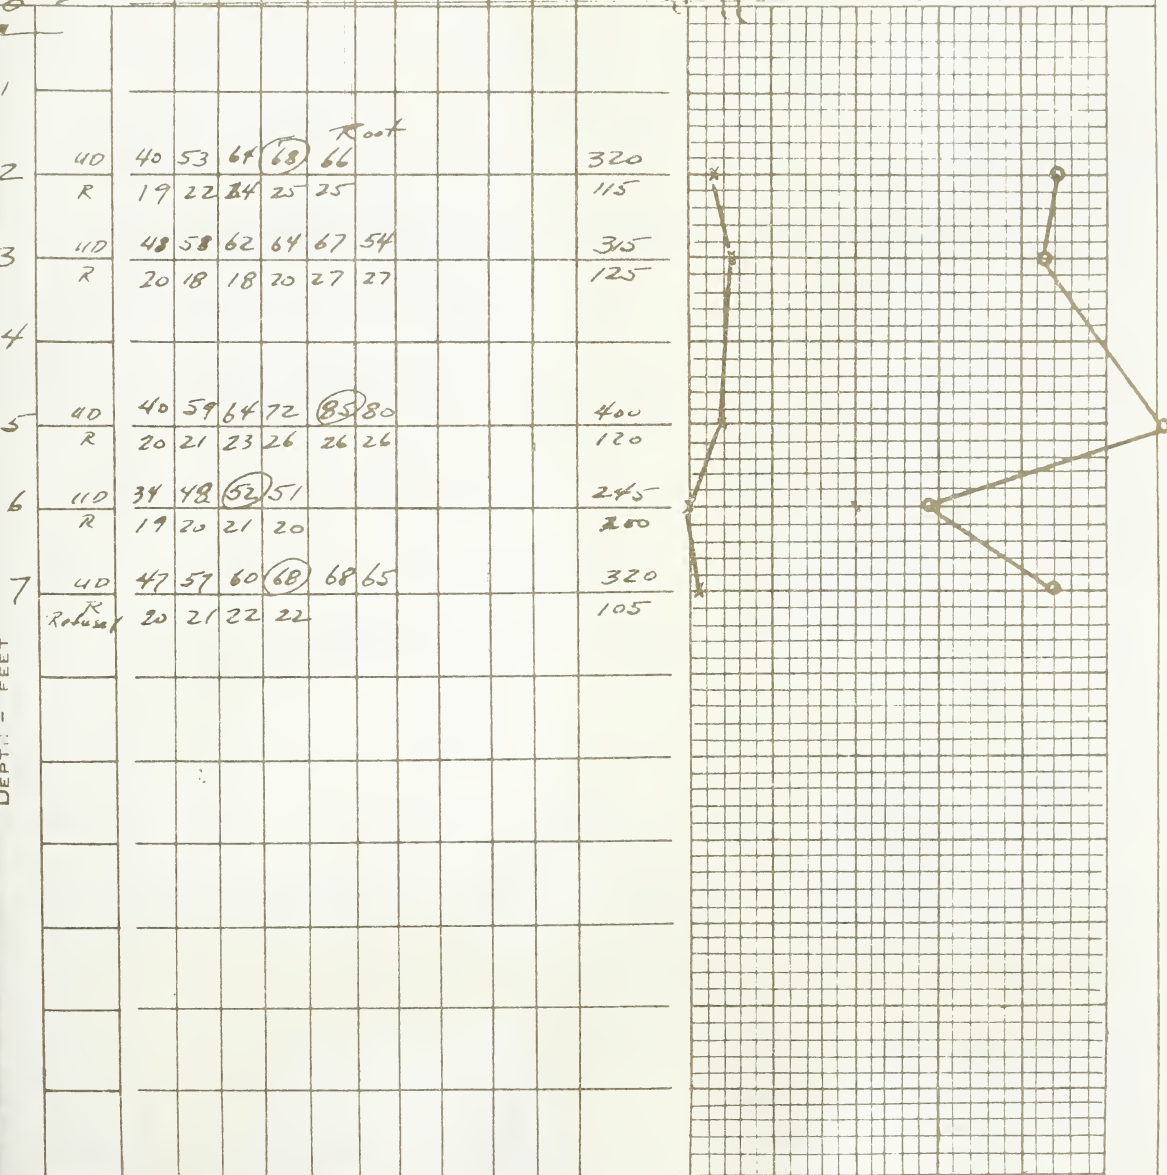 0
1
Root
2 UD 40 53 64 68 66 320
R 19 22 24 25 25 115
3 UD 48 58 62 64 67 54 315
R 20 18 18 20 27 27 125
4
5 UD 40 59 64 72 85 80 400
R 20 21 23 26 26 26 120
6 UD 34 48 52 51 245
R 19 20 21 20 100
7 UD 47 57 60 68 68 65 320
R 20 21 22 22 105
Refusal
DEPTH - FEET